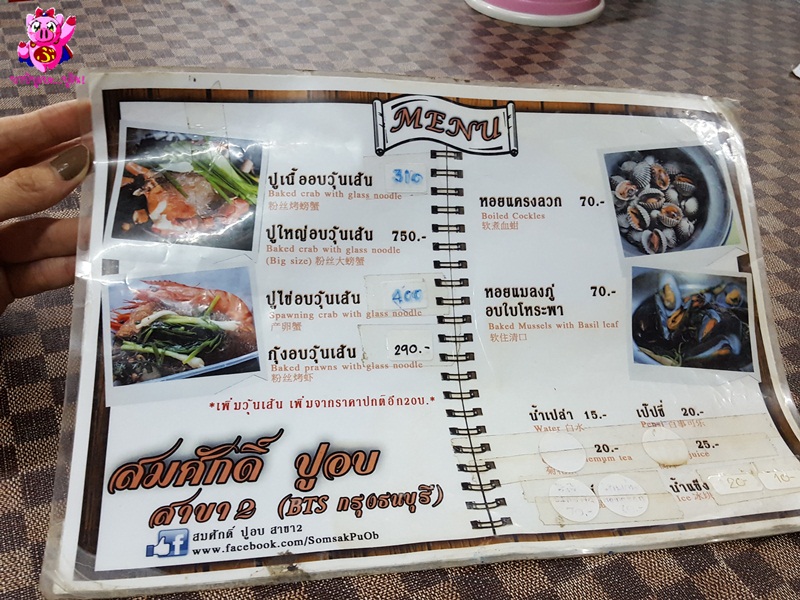 MENU
ปูเนื้ออบวุ้นเส้น 310
Baked crab with glass noodle
粉丝烤螃蟹
ปูใหญ่อบวุ้นเส้น 750.-
Baked crab with glass noodle
(Big size) 粉丝大螃蟹
ปูไข่อบวุ้นเส้น 400
Spawning crab with glass noodle
产卵蟹
กุ้งอบวุ้นเส้น 290.-
Baked prawns with glass noodle
粉丝烤虾
*เพิ่มวุ้นเส้น เพิ่มจากราคาปกติอีก20บ.*
สมศักดิ์ ปูอบ
สาขา2 (BTS กรุงธนบุรี)
สมศักดิ์ ปูอบ สาขา2
www.facebook.com/SomsakPuOb
หอยแครงลวก 70.-
Boiled Cockles
软煮血蚶
หอยแมลงภู่ 70.-
อบใบโหระพา
Baked Mussels with Basil leaf
软住清口
น้ำเปล่า 15.- เป๊ปซี่ 20.-
Water 白水 Pepsi 百事可乐
20.- 25.-
tea juice
น้ำแข็ง 20.- 10.-
Ice